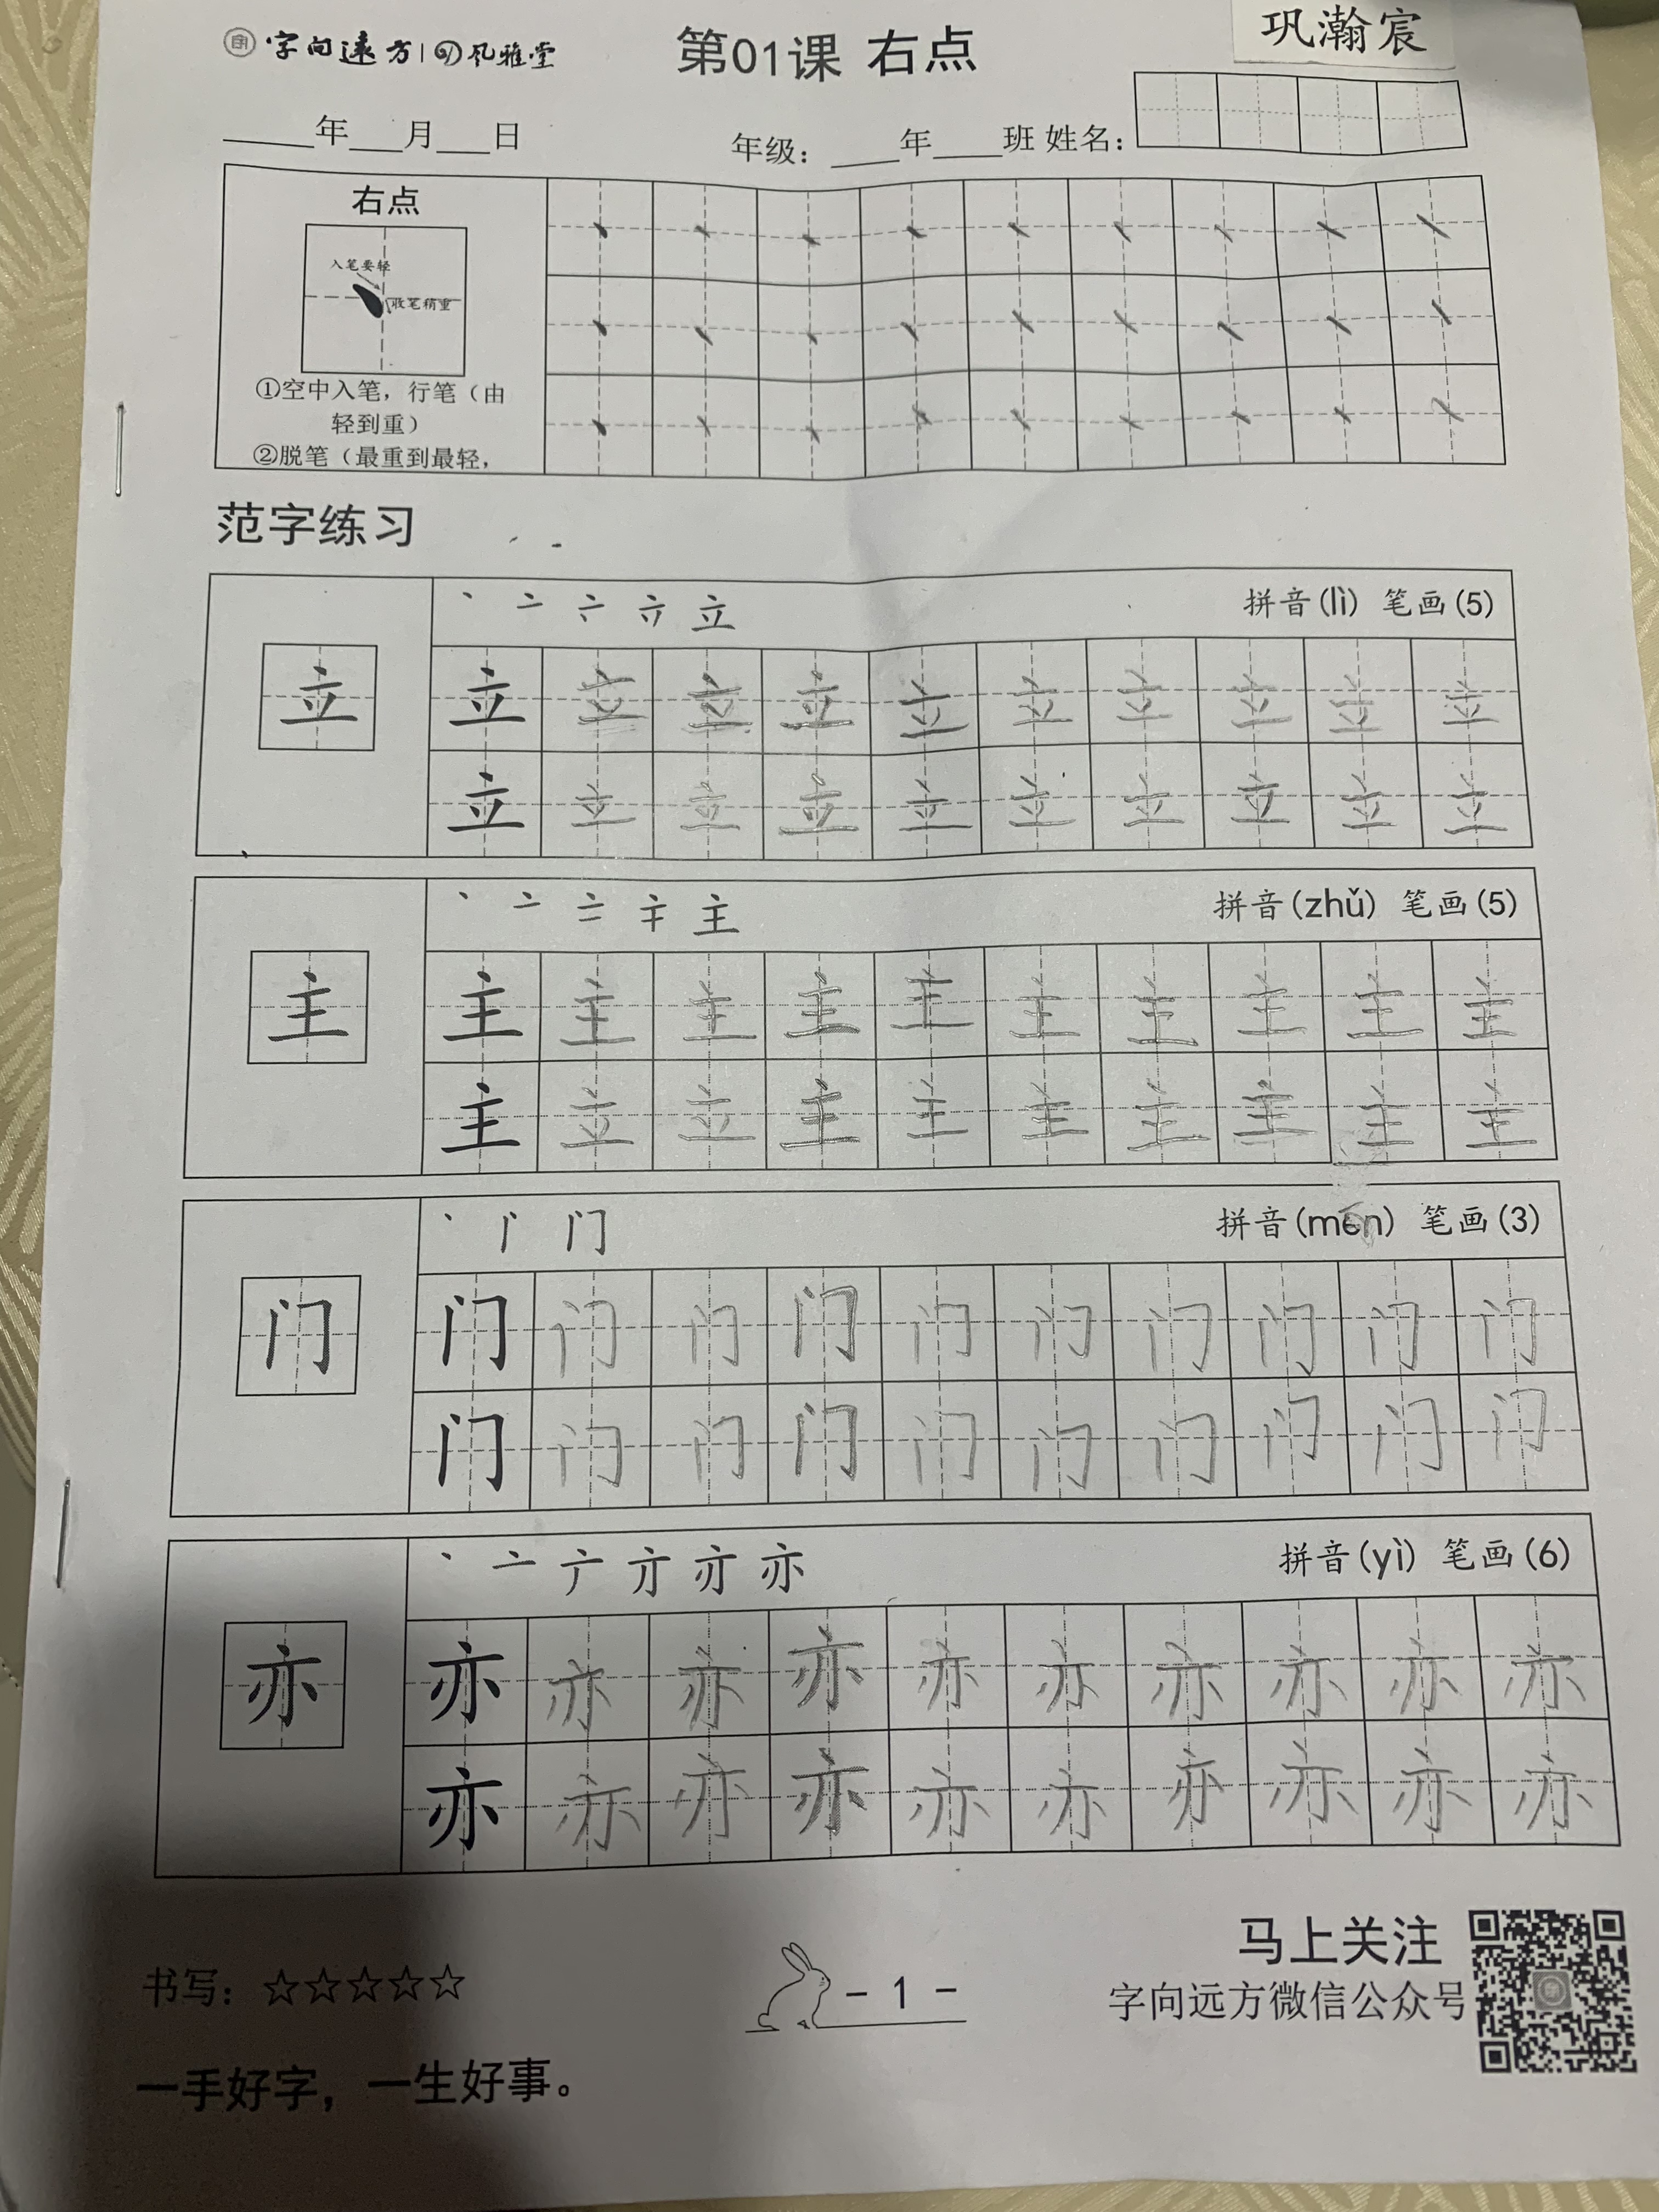 字向远方 | 风雅堂
第01课 右点
巩瀚宸
____年___月___日
年级：____年____班 姓名：
右点
入笔要轻
收笔稍重
①空中入笔，行笔（由
轻到重）
②脱笔（最重到最轻，
范字练习
立 拼音(lì) 笔画(5)
立 立 立 立 立 立 立 立 立 立 立
立 立 立 立 立 立 立 立 立 立
主 拼音(zhǔ) 笔画(5)
主 主 主 主 主 主 主 主 主 主 主
主 立 立 主 主 主 主 主 主 主
门 拼音(mén) 笔画(3)
门 门 门 门 门 门 门 门 门 门 门
门 门 门 门 门 门 门 门 门 门
亦 拼音(yì) 笔画(6)
亦 亦 亦 亦 亦 亦 亦 亦 亦 亦 亦
亦 亦 亦 亦 亦 亦 亦 亦 亦 亦
马上关注
书写：☆☆☆☆☆
- 1 -
字向远方微信公众号
一手好字，一生好事。